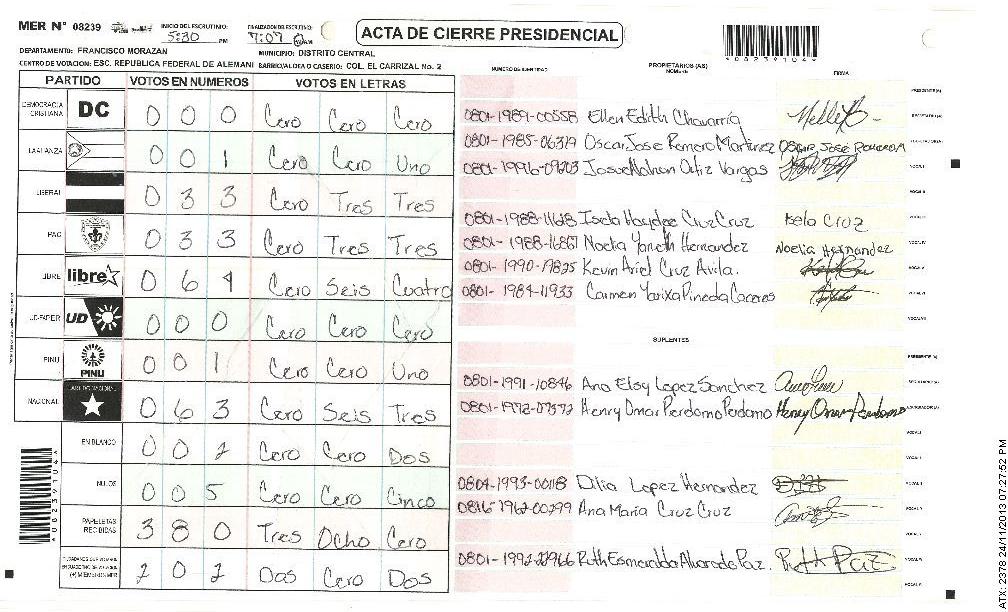 MER N° 08239 INICIO DEL ESCRUTINIO: 5:30 PM FINALIZACION DEL ESCRUTINIO: 7:07
ACTA DE CIERRE PRESIDENCIAL
*08239104*
DEPARTAMENTO: FRANCISCO MORAZAN MUNICIPIO: DISTRITO CENTRAL
CENTRO DE VOTACION: ESC. REPUBLICA FEDERAL DE ALEMANI BARRIO/ALDEA O CASERIO: COL. EL CARRIZAL No. 2
PARTIDO VOTOS EN NUMEROS VOTOS EN LETRAS
DEMOCRACIA CRISTIANA DC 0 0 0 Cero Cero Cero
LA ALIANZA 0 0 1 Cero Cero Uno
LIBERAL 0 3 3 Cero Tres Tres
PAC 0 3 3 Cero Tres Tres
LIBRE libre 0 6 4 Cero Seis Cuatro
UD-FAPER UD 0 0 0 Cero Cero Cero
PINU PINU 0 0 1 Cero Cero Uno
NACIONAL PARTIDO NACIONAL 0 6 3 Cero Seis Tres
EN BLANCO 0 0 2 Cero Cero Dos
NULOS 0 0 5 Cero Cero Cinco
PAPELETAS RECIBIDAS 3 8 0 Tres Ocho Cero
2 0 2 Dos Cero Dos
*08239104*
NUMERO DE IDENTIDAD PROPIETARIOS (AS) NOMBRE FIRMA
PRESIDENTE(A)
0801-1989-00558 Ellen Edith Chavarria SECRETARIO(A)
0801-1985-06319 Oscar Jose Romero Martinez Oscar José Romero M
Ortiz Vargas VOCAL I
VOCAL II
0801-1988-11628 Cruz Cruz Isela Cruz VOCAL III
Noelia Yaneth Hernandez Noelia Hernandez VOCAL IV
0801-1990-19825 Kevin Ariel Cruz Avila. VOCAL V
0801-1984-11933 Carmen Yarixa Pineda Caceres VOCAL VI
VOCAL VII
SUPLENTES
PRESIDENTE (A)
0801-1991-10846 Ana Elsy Lopez Sanchez SECRETARIO(A)
Henry Omar Perdomo Perdomo Henry Omar Perdomo
VOCAL I
VOCAL II
0804-1993-00118 Dilia Lopez Hernandez
0816-1962-00299 Ana Maria Cruz Cruz
Ruth Esmeralda Alvarado Paz. Ruth Paz
ATX: 2378 24/11/2013 07:27:52 PM